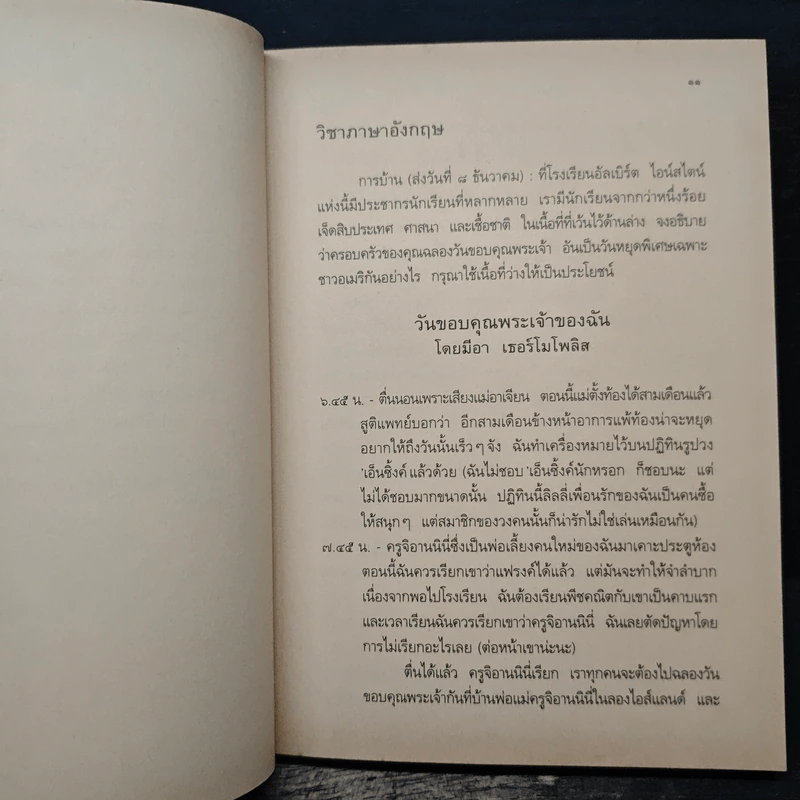 ๑๑
วิชาภาษาอังกฤษ
การบ้าน (ส่งวันที่ ๘ ธันวาคม) : ที่โรงเรียนอัลเบิร์ต ไอน์สไตน์
แห่งนี้มีประชากรนักเรียนที่หลากหลาย เรามีนักเรียนจากกว่าหนึ่งร้อย
เจ็ดสิบประเทศ ศาสนา และเชื้อชาติ ในเนื้อที่ที่เว้นไว้ด้านล่าง จงอธิบาย
ว่าครอบครัวของคุณฉลองวันขอบคุณพระเจ้า อันเป็นวันหยุดพิเศษเฉพาะ
ชาวอเมริกันอย่างไร กรุณาใช้เนื้อที่ว่างให้เป็นประโยชน์
วันขอบคุณพระเจ้าของฉัน
โดยมีอา เธอร์โมโพลิส
๖.๔๕ น. - ตื่นนอนเพราะเสียงแม่อาเจียน ตอนนี้แม่ตั้งท้องได้สามเดือนแล้ว
สูติแพทย์บอกว่า อีกสามเดือนข้างหน้าอาการแพ้ท้องน่าจะหยุด
อยากให้ถึงวันนั้นเร็วๆจัง ฉันทำเครื่องหมายไว้บนปฏิทินรูปวง
'เอ็นซิ้งค์แล้วด้วย (ฉันไม่ชอบ 'เอ็นซิ้งค์นักหรอก ก็ชอบนะ แต่
ไม่ได้ชอบมากขนาดนั้น ปฏิทินนี้ลิลลี่เพื่อนรักของฉันเป็นคนซื้อ
ให้สนุกๆ แต่สมาชิกของวงคนนั้นก็น่ารักไม่ใช่เล่นเหมือนกัน)
๗.๔๕ น. - ครูจิอานนินี่ซึ่งเป็นพ่อเลี้ยงคนใหม่ของฉันมาเคาะประตูห้อง
ตอนนี้ฉันควรเรียกเขาว่าแฟรงค์ได้แล้ว แต่มันจะทำให้จำลำบาก
เนื่องจากพอไปโรงเรียน ฉันต้องเรียนพีชคณิตกับเขาเป็นคาบแรก
และเวลาเรียนฉันควรเรียกเขาว่าครูจิอานนินี่ ฉันเลยตัดปัญหาโดย
การไม่เรียกอะไรเลย (ต่อหน้าเขาน่ะนะ)
ตื่นได้แล้ว ครูจิอานนินี่เรียก เราทุกคนจะต้องไปฉลองวัน
ขอบคุณพระเจ้ากันที่บ้านพ่อแม่ครูจิอานนินี่ในลองไอส์แลนด์ และ